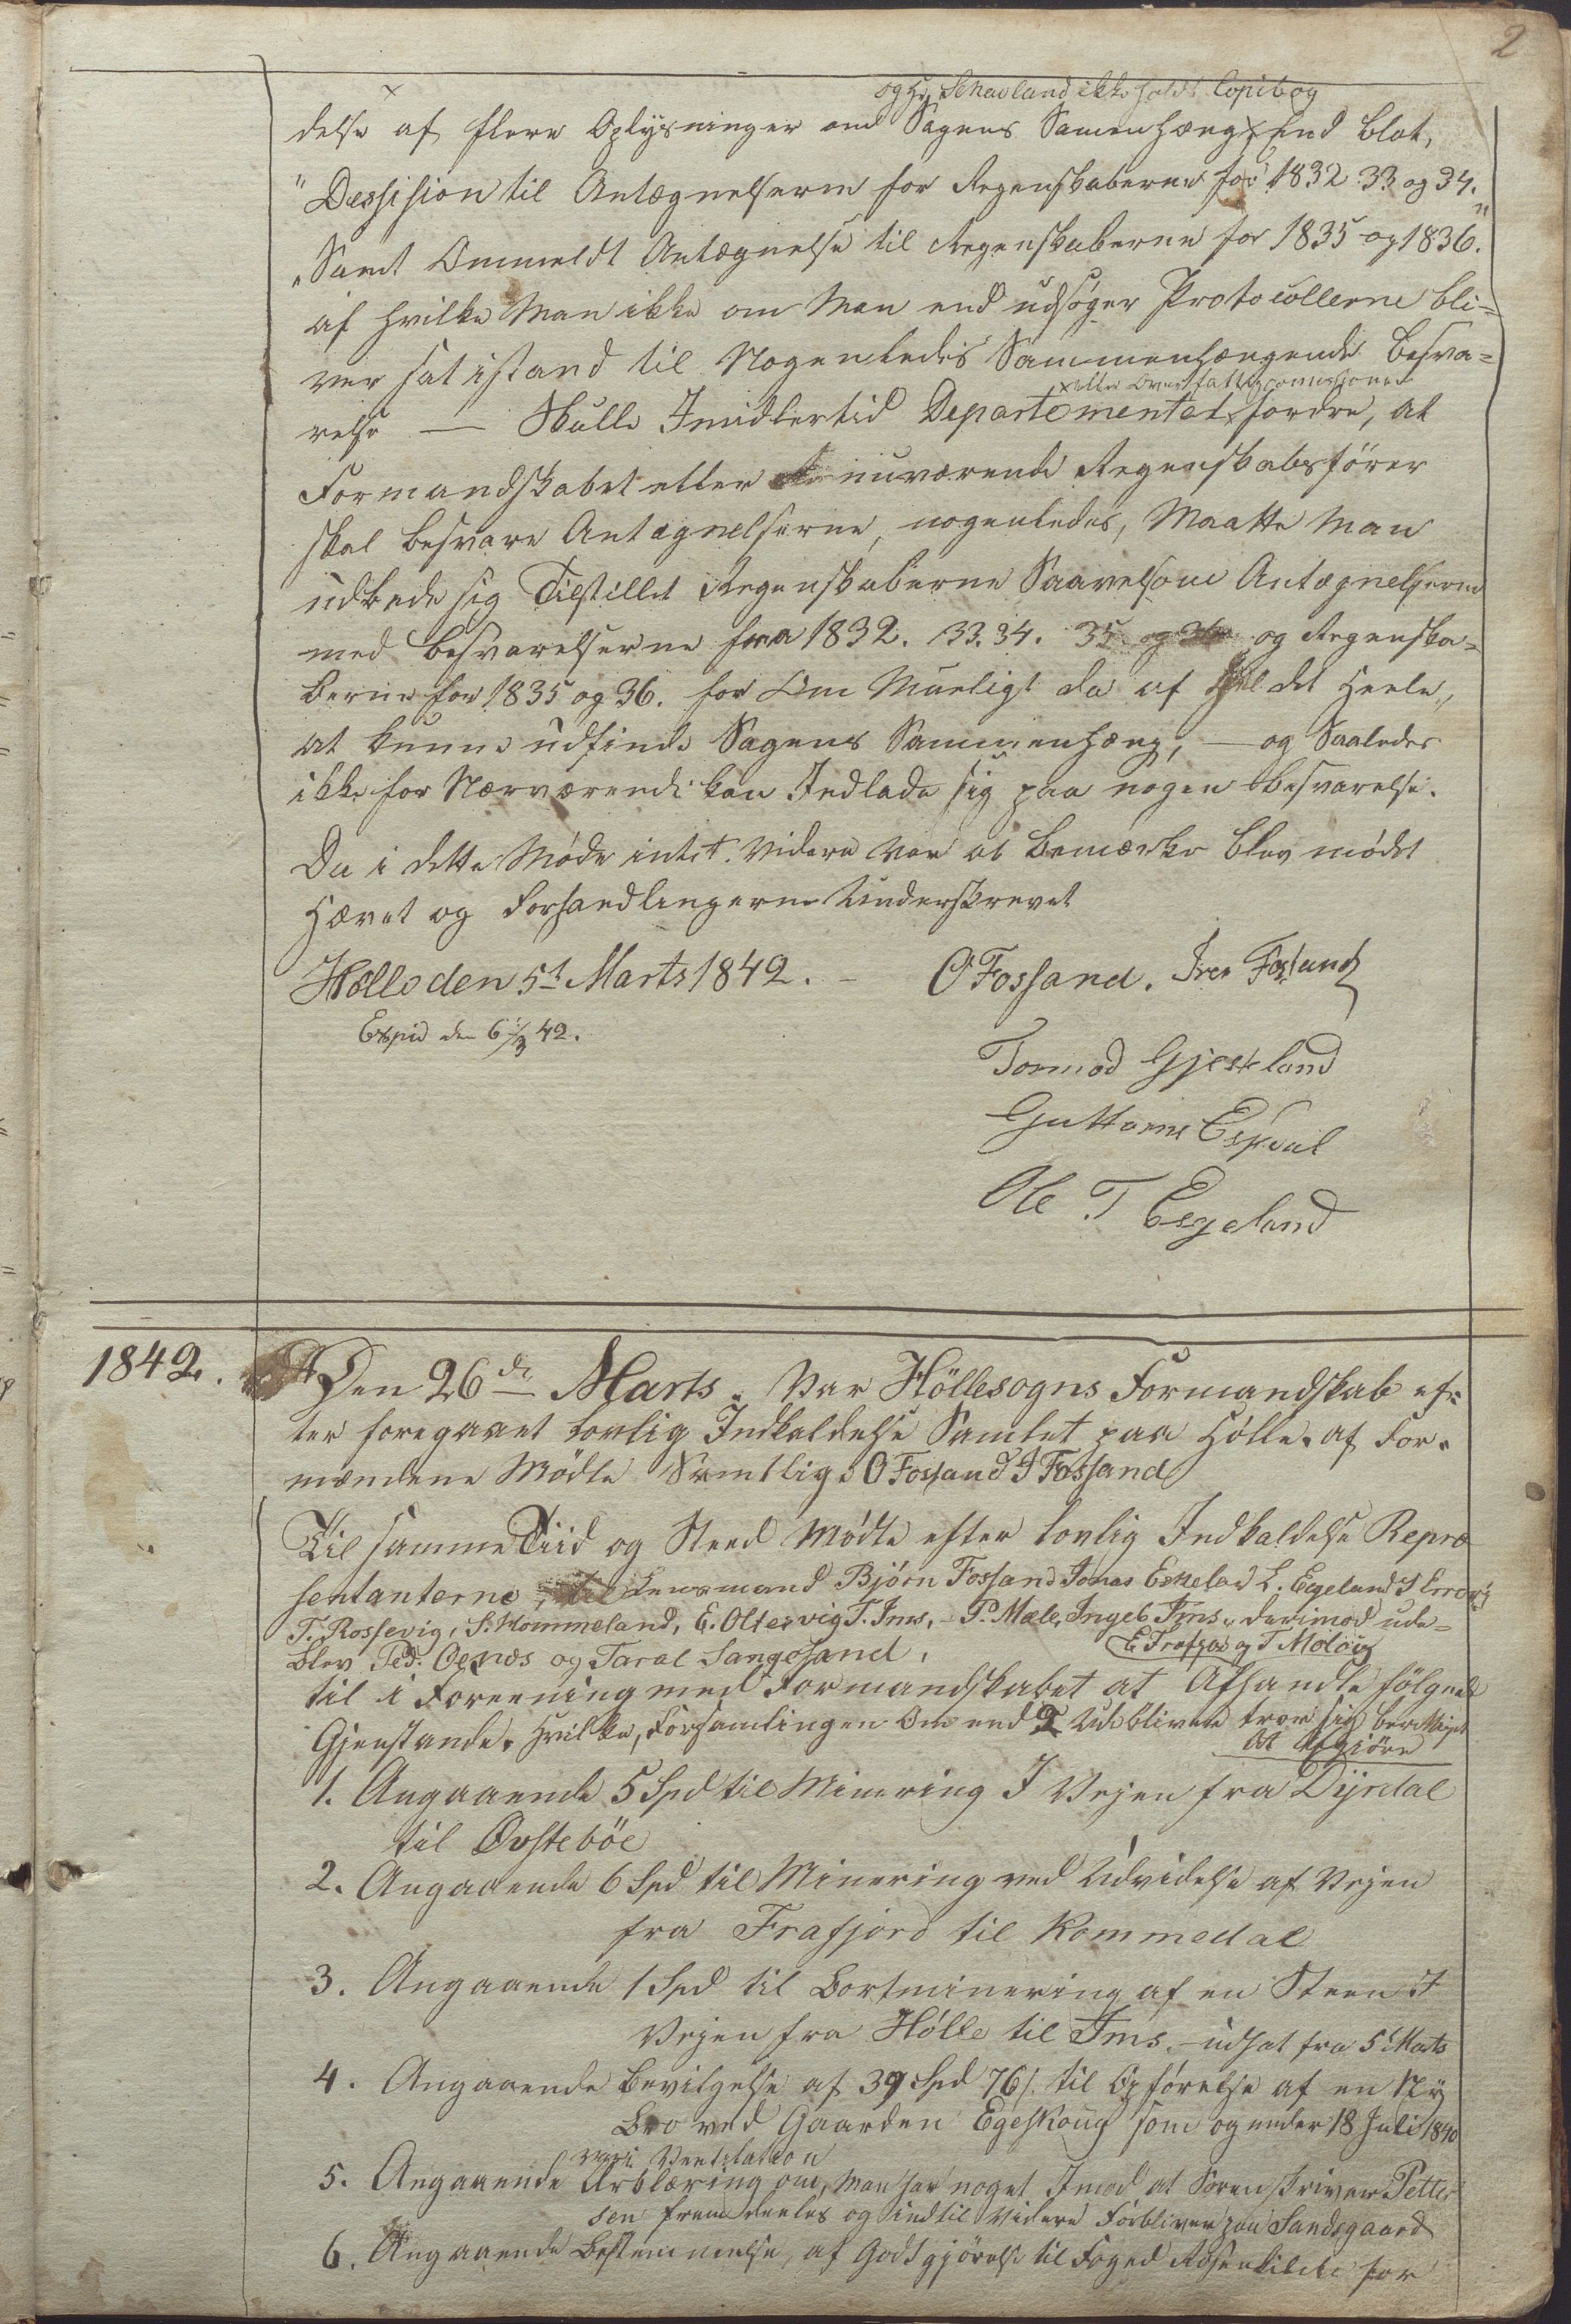 2
og Hr Schavland ikke holdt Copibog
delse af flere Oplysninger om Sagens Samenhæng x End blot,
"Dessision til Antægnelserne for Regenskaberne for 1832. 33 og 34."
"Samt Ommeldt Antægnelse til Regenskaberne for 1835 og 1836."
af hvilke Man ikke om Man end udsøger Protocollerne bli-
ver sat istand til Nogenledes Sammenhængende Besva-
x eller Overfattigcomissionen
relse — Skulle Imidlertid Departementet x fordre, at
Formandskabet eller nuværende Regenskabsfører
skal besvare Antægnelserne, nogenledes, Maatte Man
udbede sig Tilstillet Regenskaberne Saavelsom Antægnelserne
med besvarelserne fra 1832. 33. 34. 35 og Regenska-
berne for 1835 og 36. for Om Mueligt da af det Heele,
at kunne udfinde Sagens Sammenhæng, — og Saaledes
ikke for Nærværende kan Indlade sig paa nogen besvarelse.
Da i dette Møde intet Videre var at bemærke blev mødet
Hævet og Forhandlingerne Underskrevet
Hølle den 5t Marts 1842. – O Fossand. Iver Fossand
Exped den 6/3 42.
Tormod Gjesteland
Guttorm Espedal
Ole T Eegeland
1842.
Den 26de Marts. Var Höllesogns Formandskab ef-
ter foregaaet lovlig Indkaldelse Samlet paa Hölle. af For-
mændene Mødte Samtlige O Fossand I Fossand
Til samme Tiid og Sted Mødte efter lovlig Indkaldelse Repræ
sentanterne, Lensmand Björn Fossand Jonas Eskelad L. Egeland S Errevig
T. Rossevig, S. Hommeland, E. Oltesvig T. Ims, – P. Mæle, Ingeb Ims. derimod ude-
blev Ped. Oenæs og Taral Langesand, E Fratjos og T Moldig
til i Foreening med Formandskabet at Afhandle følgende
Gjenstande. Hvilke, Forsamlingen Om end 2 Udeblivere troer sig berettiget
at Afgiöre
1. Angaaende 5 Spd til Minering I Veien fra Dijrdal
til Øvsteböe
2. Angaaende 6 Spd til Minering ved Udvidelse af Vejen
fra Frafjord til Kommedal
3. Angaaende 1 Spd til Bortminering af en Steen I
Vejen fra Hölle til Ims. – udsat fra 5 Marts
4. Angaaende Bevilgelse af 39 Spd 76 s. til Opførelse af en Ny
Bro ved Gaarden Egeskoug som og under 18 Juli 1840
5. Angaaende Ærklæring om, Man har noget Imod at Sorenskriver Petter
sen fremdeeles og indtil Videre Forbliver paa Sandsgaard
6. Angaaende Bestemmelse, af Godtgjörelse til Foged Rosenkilde for